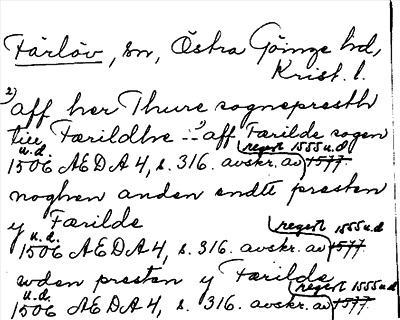 Färlöv, sn, Östra Göinge hd,
Krist. l.
2) aff her Thure sognepresth
till Færildhe - - 3) aff Færilde sogen
u.d. regest 1555 u.d.
1506 ÆDA 4, s. 316. avskr. av 1577
noghen anden endtt presten
y Færilde regest 1555 u.d.
u.d.
1506 ÆDA 4, s. 316. avskr. av 1577
uden presten y Færilde
u.d. regest 1555 u.d.
1506 ÆDA 4, s. 316. avskr. av 1577